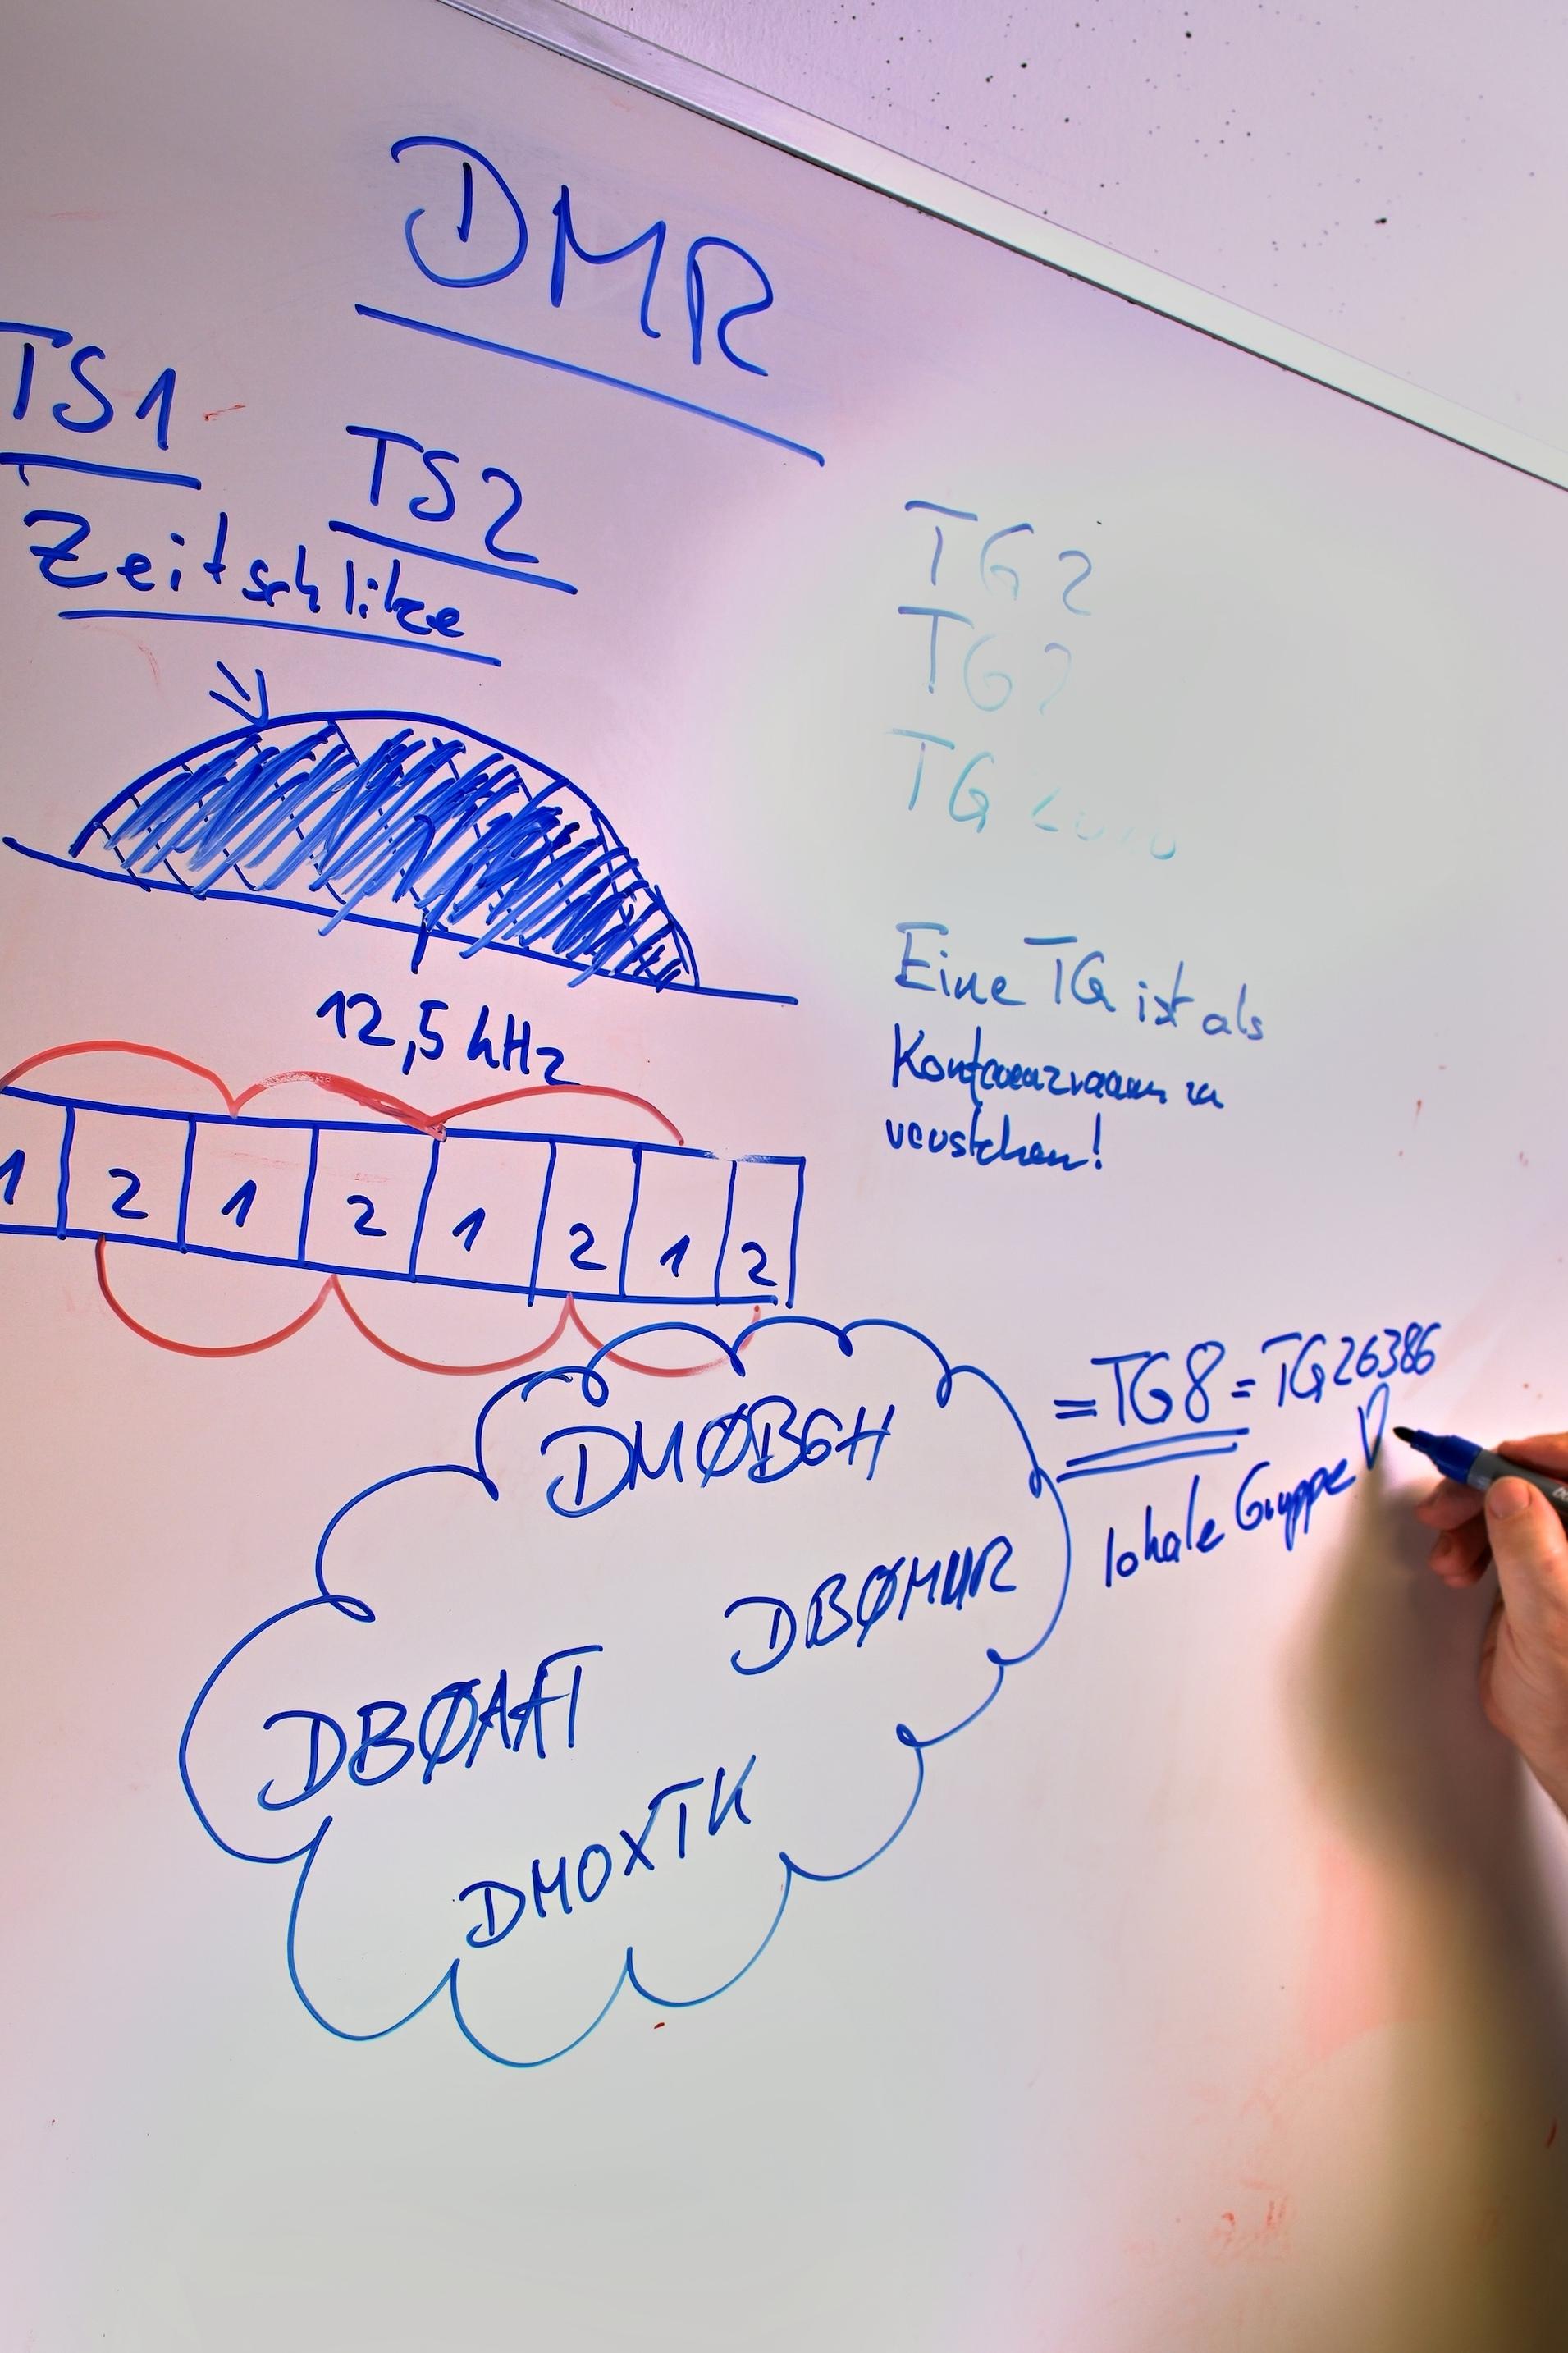 DMR
TS1
TS2
Zeitschlitze
12,5 kHz
1 2 1 2 1 2 1 2
TG 2
TG
TG
Eine TG ist als
Konferenzraum zu
verstehen!
DMØBGH
= TG8 = TG26386
lokale Gruppe
DBØMHR
DBØAAT
DMOXTK